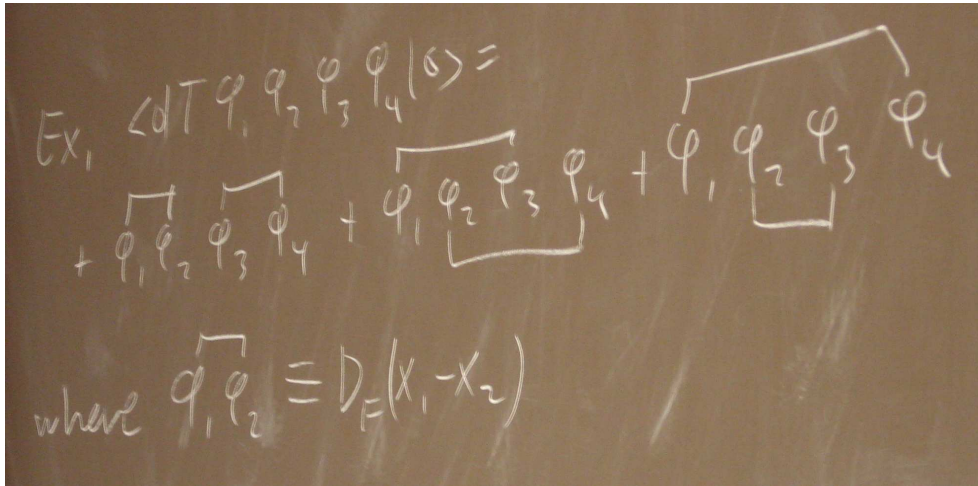 Ex, <0|T φ₁ φ₂ φ₃ φ₄|0> =
+ φ₁φ₂ φ₃φ₄ + φ₁φ₂φ₃φ₄ + φ₁φ₂φ₃φ₄
where φ₁φ₂ ≡ D_F(x₁-x₂)